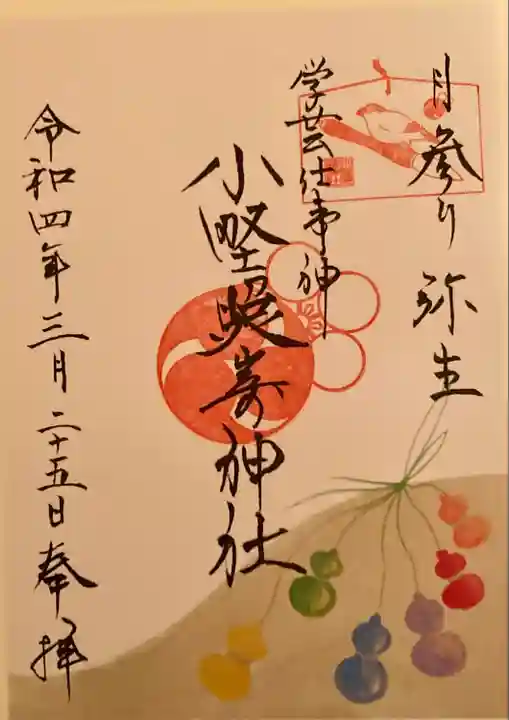 月参り 弥生
学芸仕事神
小野照崎神社
令和四年三月二十五日奉拝